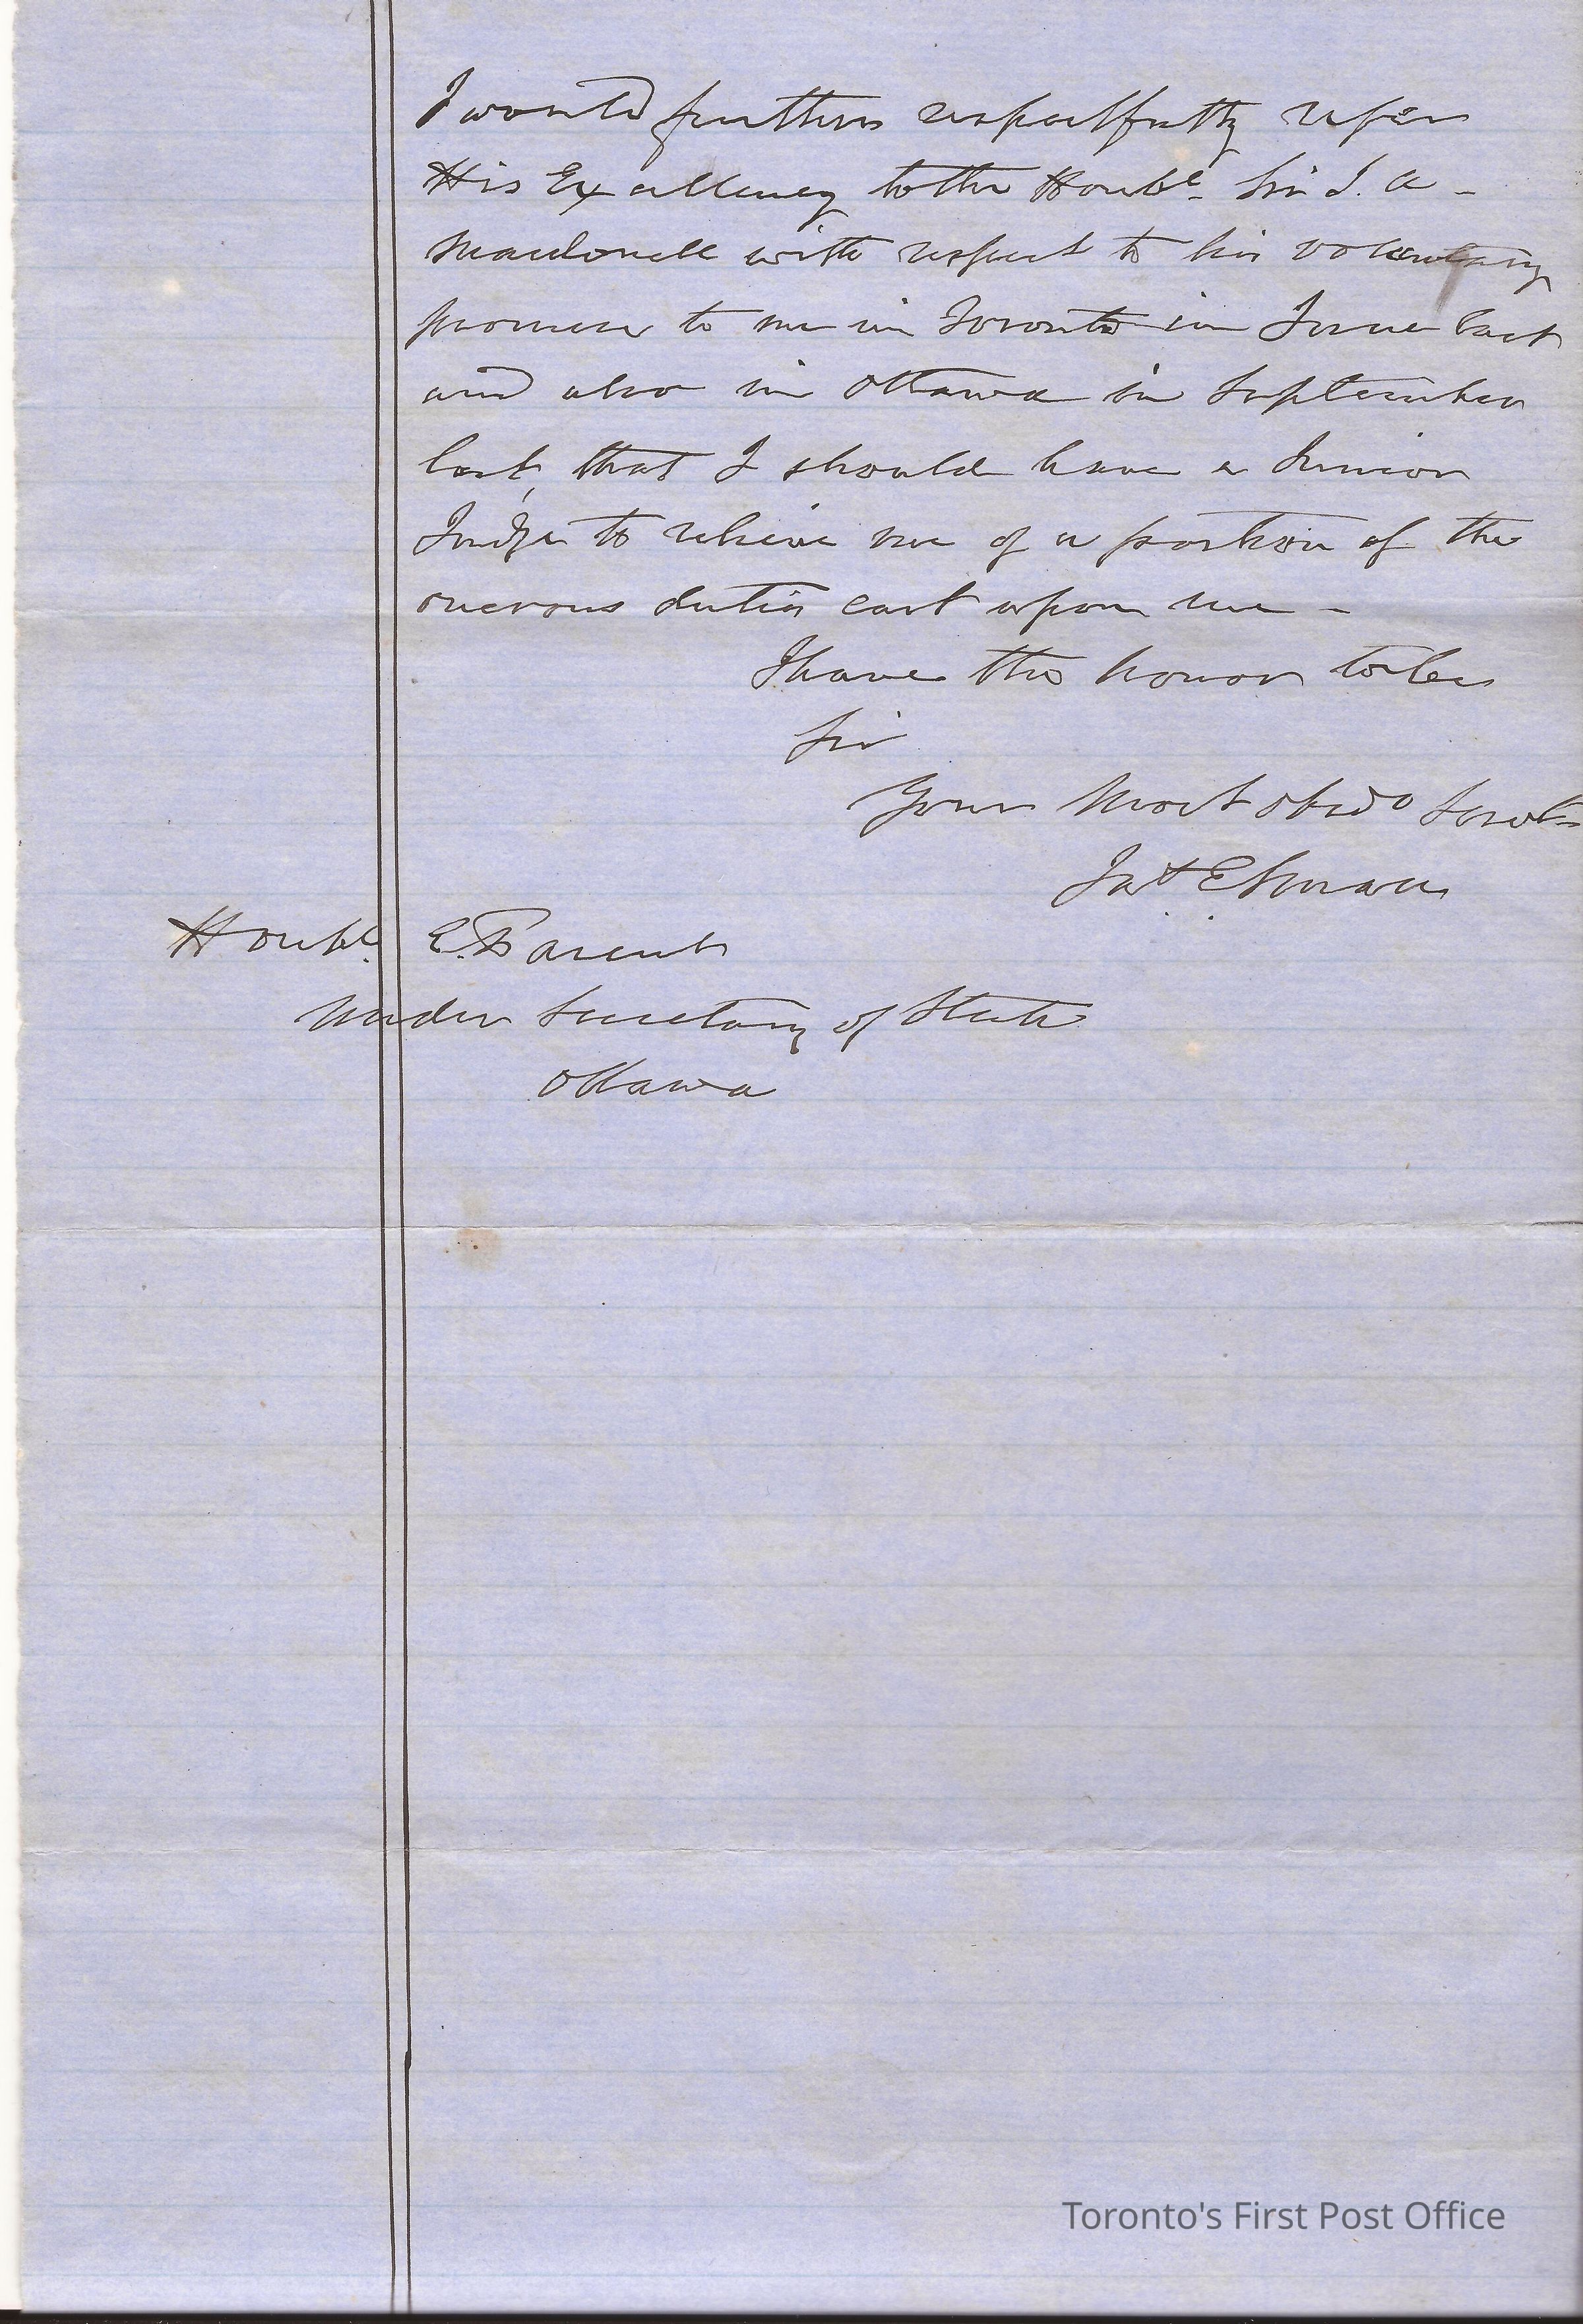 I would further respectfully refer
His Excellency to the Honble. Sir J. A -
Macdonell with respect to his voluntary
promise to me in Toronto in June last
and also in Ottawa in September
last, that I should have a Junior
Judge to relieve me of a portion of the
onerous duties cast upon me -
I have the honor to be
Sir
Your Most obedt Servt
Jas E Small
Honble. E. Parent
Under Secretary of State
Ottawa
Toronto's First Post Office